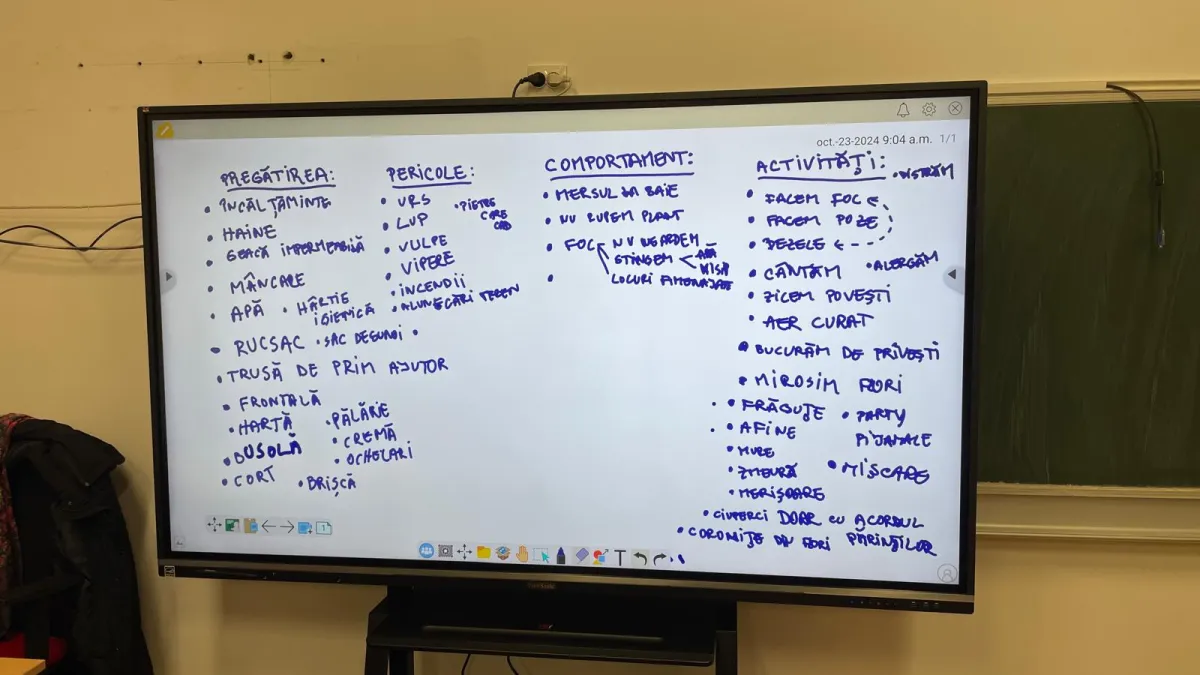 oct.-23-2024 9:04 a.m. 1/1
PREGĂTIREA:
• ÎNCĂLȚĂMINTE
• HAINE
• GEACĂ IMPERMEABILĂ
• MÂNCARE
• APĂ • HÂRTIE
IGIENICĂ
• RUCSAC • SAC DE GUNOI •
• TRUSĂ DE PRIM AJUTOR
• FRONTALĂ
• HARTĂ • PĂLĂRIE
• BUSOLĂ • CREMĂ
• OCHELARI
• CORT • BRIȘCĂ
PERICOLE:
• URS
• LUP • PIETRE
CARE
CAD
• VULPE
• VIPERE
• INCENDII
• ALUNECĂRI TEREN
COMPORTAMENT:
• MERSUL LA BAIE
• NU RUPEM PLANT
• FOC NU NE ARDEM
STINGEM < APĂ
NISIP
LOCURI AMENAJATE
•
ACTIVITĂȚI: • DISTRĂM
• FACEM FOC
• FACEM POZE
• BEZELE
• CÂNTĂM • ALERGĂM
• ZICEM POVEȘTI
• AER CURAT
• BUCURĂM DE PRIVEȘTI
• MIROSIM FLORI
• FRĂGUȚE • PARTY
PIJAMALE
• AFINE
• MURE
• ZMEURĂ • MIȘCARE
• MERIȘOARE
• CIUPERCI DOAR CU ACORDUL
PĂRINȚILOR
• CORONIȚE DIN FLORI